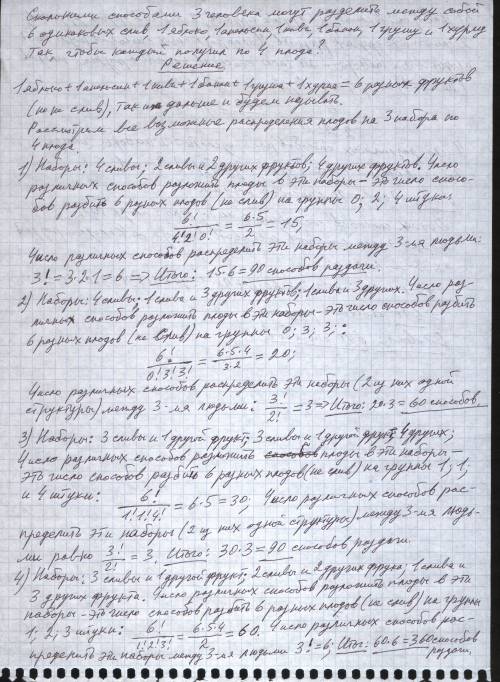 Сколькими способами 3 человека могут разделить между собой
6 одинаковых слив, 1 яблоко, 1 апельсин, 1 киви, 1 банан, 1 грушу и 1 хурму
так, чтобы каждый получил по 4 плода?
Решение
1 яблоко + 1 апельсин + 1 киви + 1 банан + 1 груша + 1 хурма = 6 разных фруктов
(но не слив), так их дальше и будем называть.
Рассмотрим все возможные распределения плодов на 3 набора по
4 плода.
1) Наборы: 4 сливы; 2 сливы и 2 других фруктов; 4 других фруктов. Число
различных способов разложить плоды в эти наборы - это число спосо-
бов разбить 6 разных плодов (не слив) на группы 0; 2; 4 штуки:
6!/(4!2!0!) = 6·5/2 = 15;
Число различных способов распределить эти наборы между 3-мя людьми:
3! = 3·2·1 = 6 => Итого: 15·6 = 90 способов раздачи.
2) Наборы: 4 сливы; 1 слива и 3 других фруктов; 1 слива и 3 других. Число раз-
личных способов разложить плоды в эти наборы - это число способов разбить
6 разных плодов (не слив) на группы 0; 3; 3;:
6!/(0!3!3!) = 6·5·4/(3·2) = 20;
Число различных способов распределить эти наборы (2 из них одной
структуры) между 3-мя людьми: 3!/2! = 3 => Итого: 20·3 = 60 способов.
3) Наборы: 3 сливы и 1 другой фрукт; 3 сливы и 1 другой фрукт; 4 других;
Число различных способов разложить плоды в эти наборы -
это число способов разбить 6 разных плодов (не слив) на группы 1; 1;
и 4 штуки: 6!/(1!1!4!) = 6·5 = 30; Число различных способов рас-
пределить эти наборы (2 из них одной структуры) между 3-мя людь-
ми равно 3!/2! = 3. Итого: 30·3 = 90 способов раздачи.
4) Наборы: 3 сливы и 1 другой фрукт; 2 сливы и 2 других фрукта; 1 слива и
3 других фрукта. Число различных способов разложить плоды в эти
наборы - это число способов разбить 6 разных плодов (не слив) на группы
1; 2; 3 штуки: 6!/(1!2!3!) = 6·5·4/2 = 60. Число различных способов рас-
пределить эти наборы между 3-мя людьми 3! = 6; Итог: 60·6 = 360 способов
раздач.